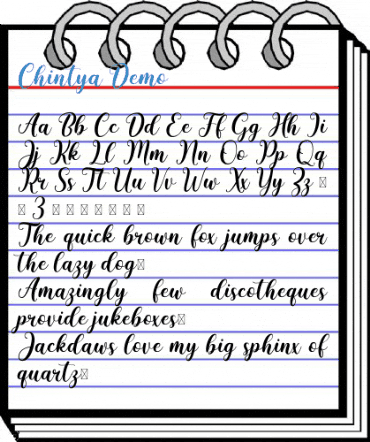 Chintya Demo
Aa Bb Cc Dd Ee Ff Gg Hh Ii
Jj Kk Ll Mm Nn Oo Pp Qq
Rr Ss Tt Uu Vv Ww Xx Yy Zz □
□ 3 □ □ □ □ □ □ □
The quick brown fox jumps over
the lazy dog□
Amazingly few discotheques
provide jukeboxes□
Jackdaws love my big sphinx of
quartz□